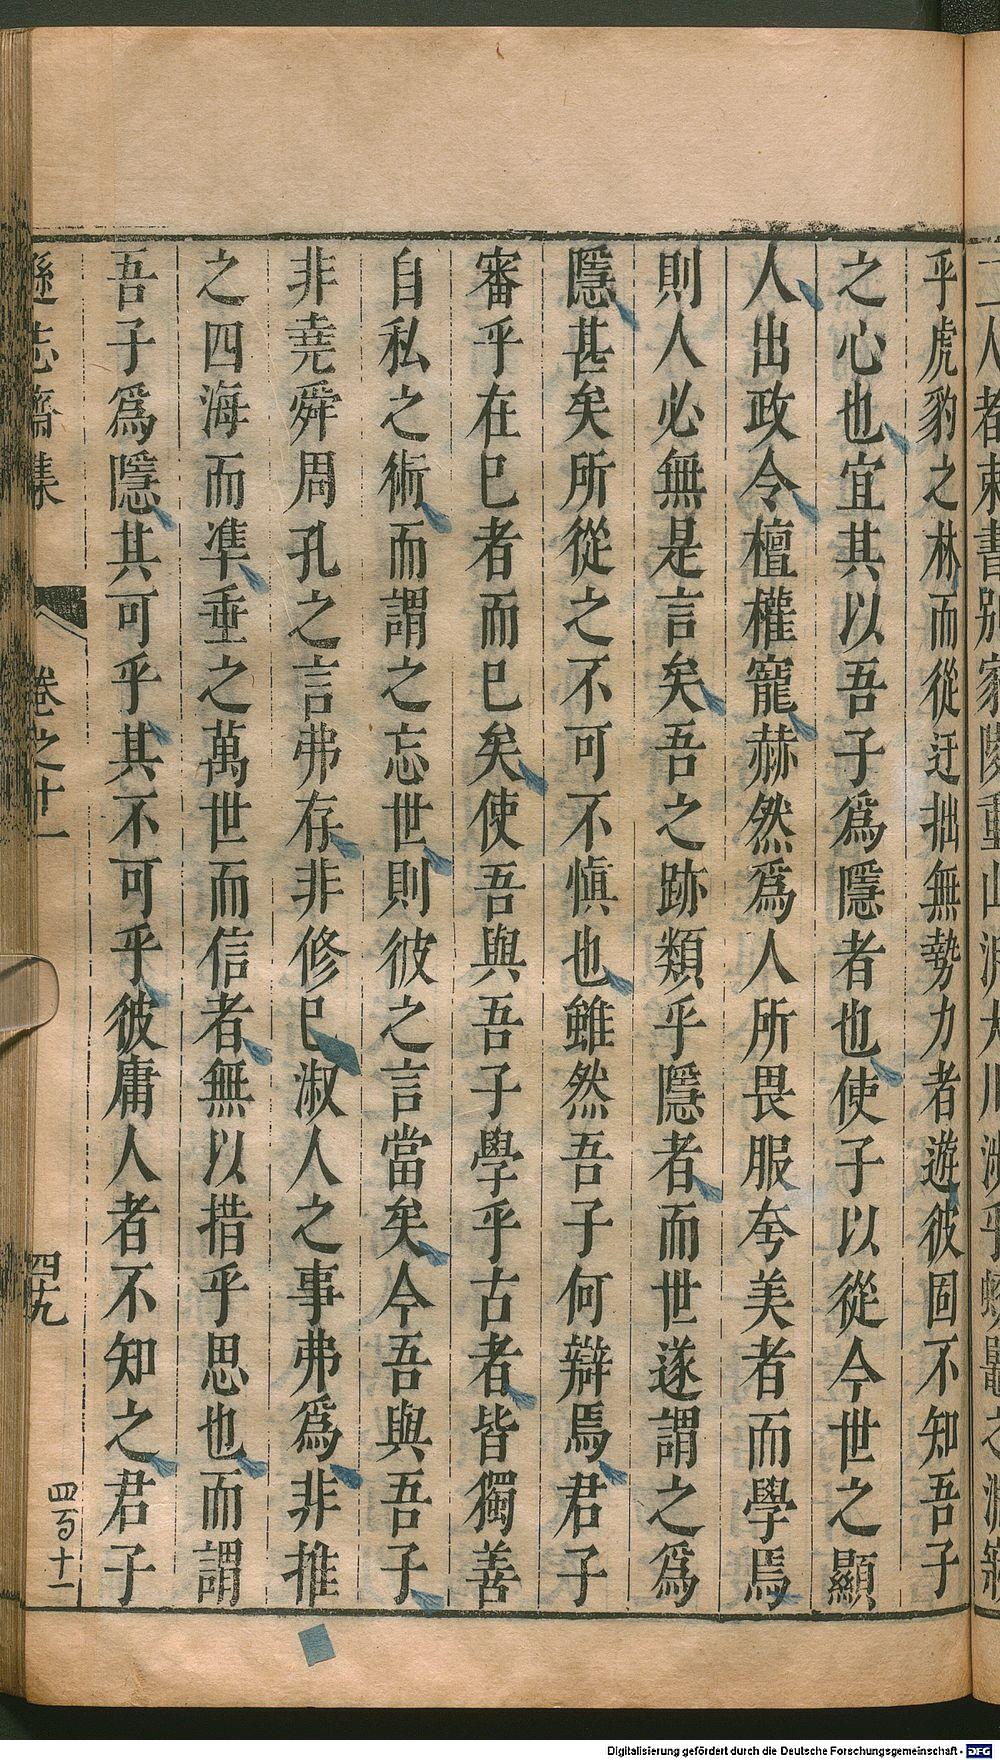 乎虎豹之林而從迂拙無勢力者遊彼固不知吾子
之心也宜其以吾子爲隱者也使子以從今世之顯
人出政令檀權寵赫然爲人所畏服夸美者而學焉
則人必無是言矣吾之跡類乎隱者而世遂謂之爲
隱甚矣所從之不可不慎也雖然吾子何辯焉君子
審乎在巳者而巳矣使吾與吾子學乎古者皆獨善
自私之術而謂之忘世則彼之言當矣今吾與吾子
非堯舜周孔之言弗存非修巳淑人之事弗爲非推
之四海而準垂之萬世而信者無以措乎思也而謂
吾子爲隱其可乎其不可乎彼庸人者不知之君子
遜志齋集 卷之十一 四九 四百十一
Digitalisierung gefördert durch die Deutsche Forschungsgemeinschaft - DFG